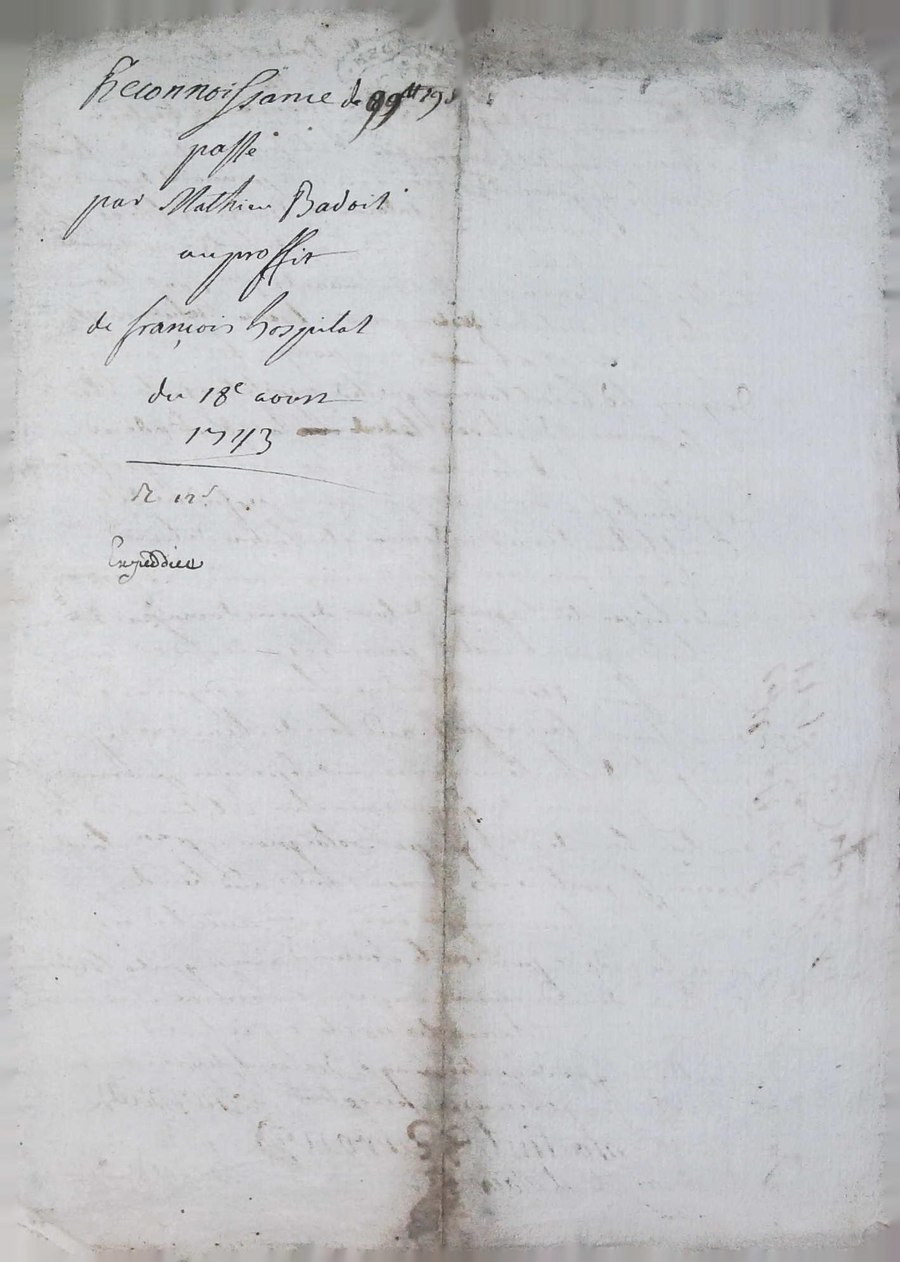 Reconnoissance de 99ᵗᵗ 19ˢ
passé
par Mathieu Badoit
au proffit
de françois hospital
du 18ᵉ aoust
1743
Expeddiée